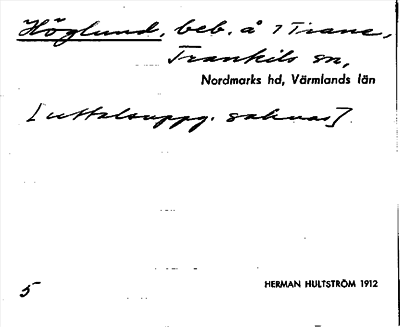 Höglund, beb. å 7 Trane,
Trankils sn,
Nordmarks hd, Värmlands län
[uttalsuppg. saknas].
5
HERMAN HULTSTRÖM 1912